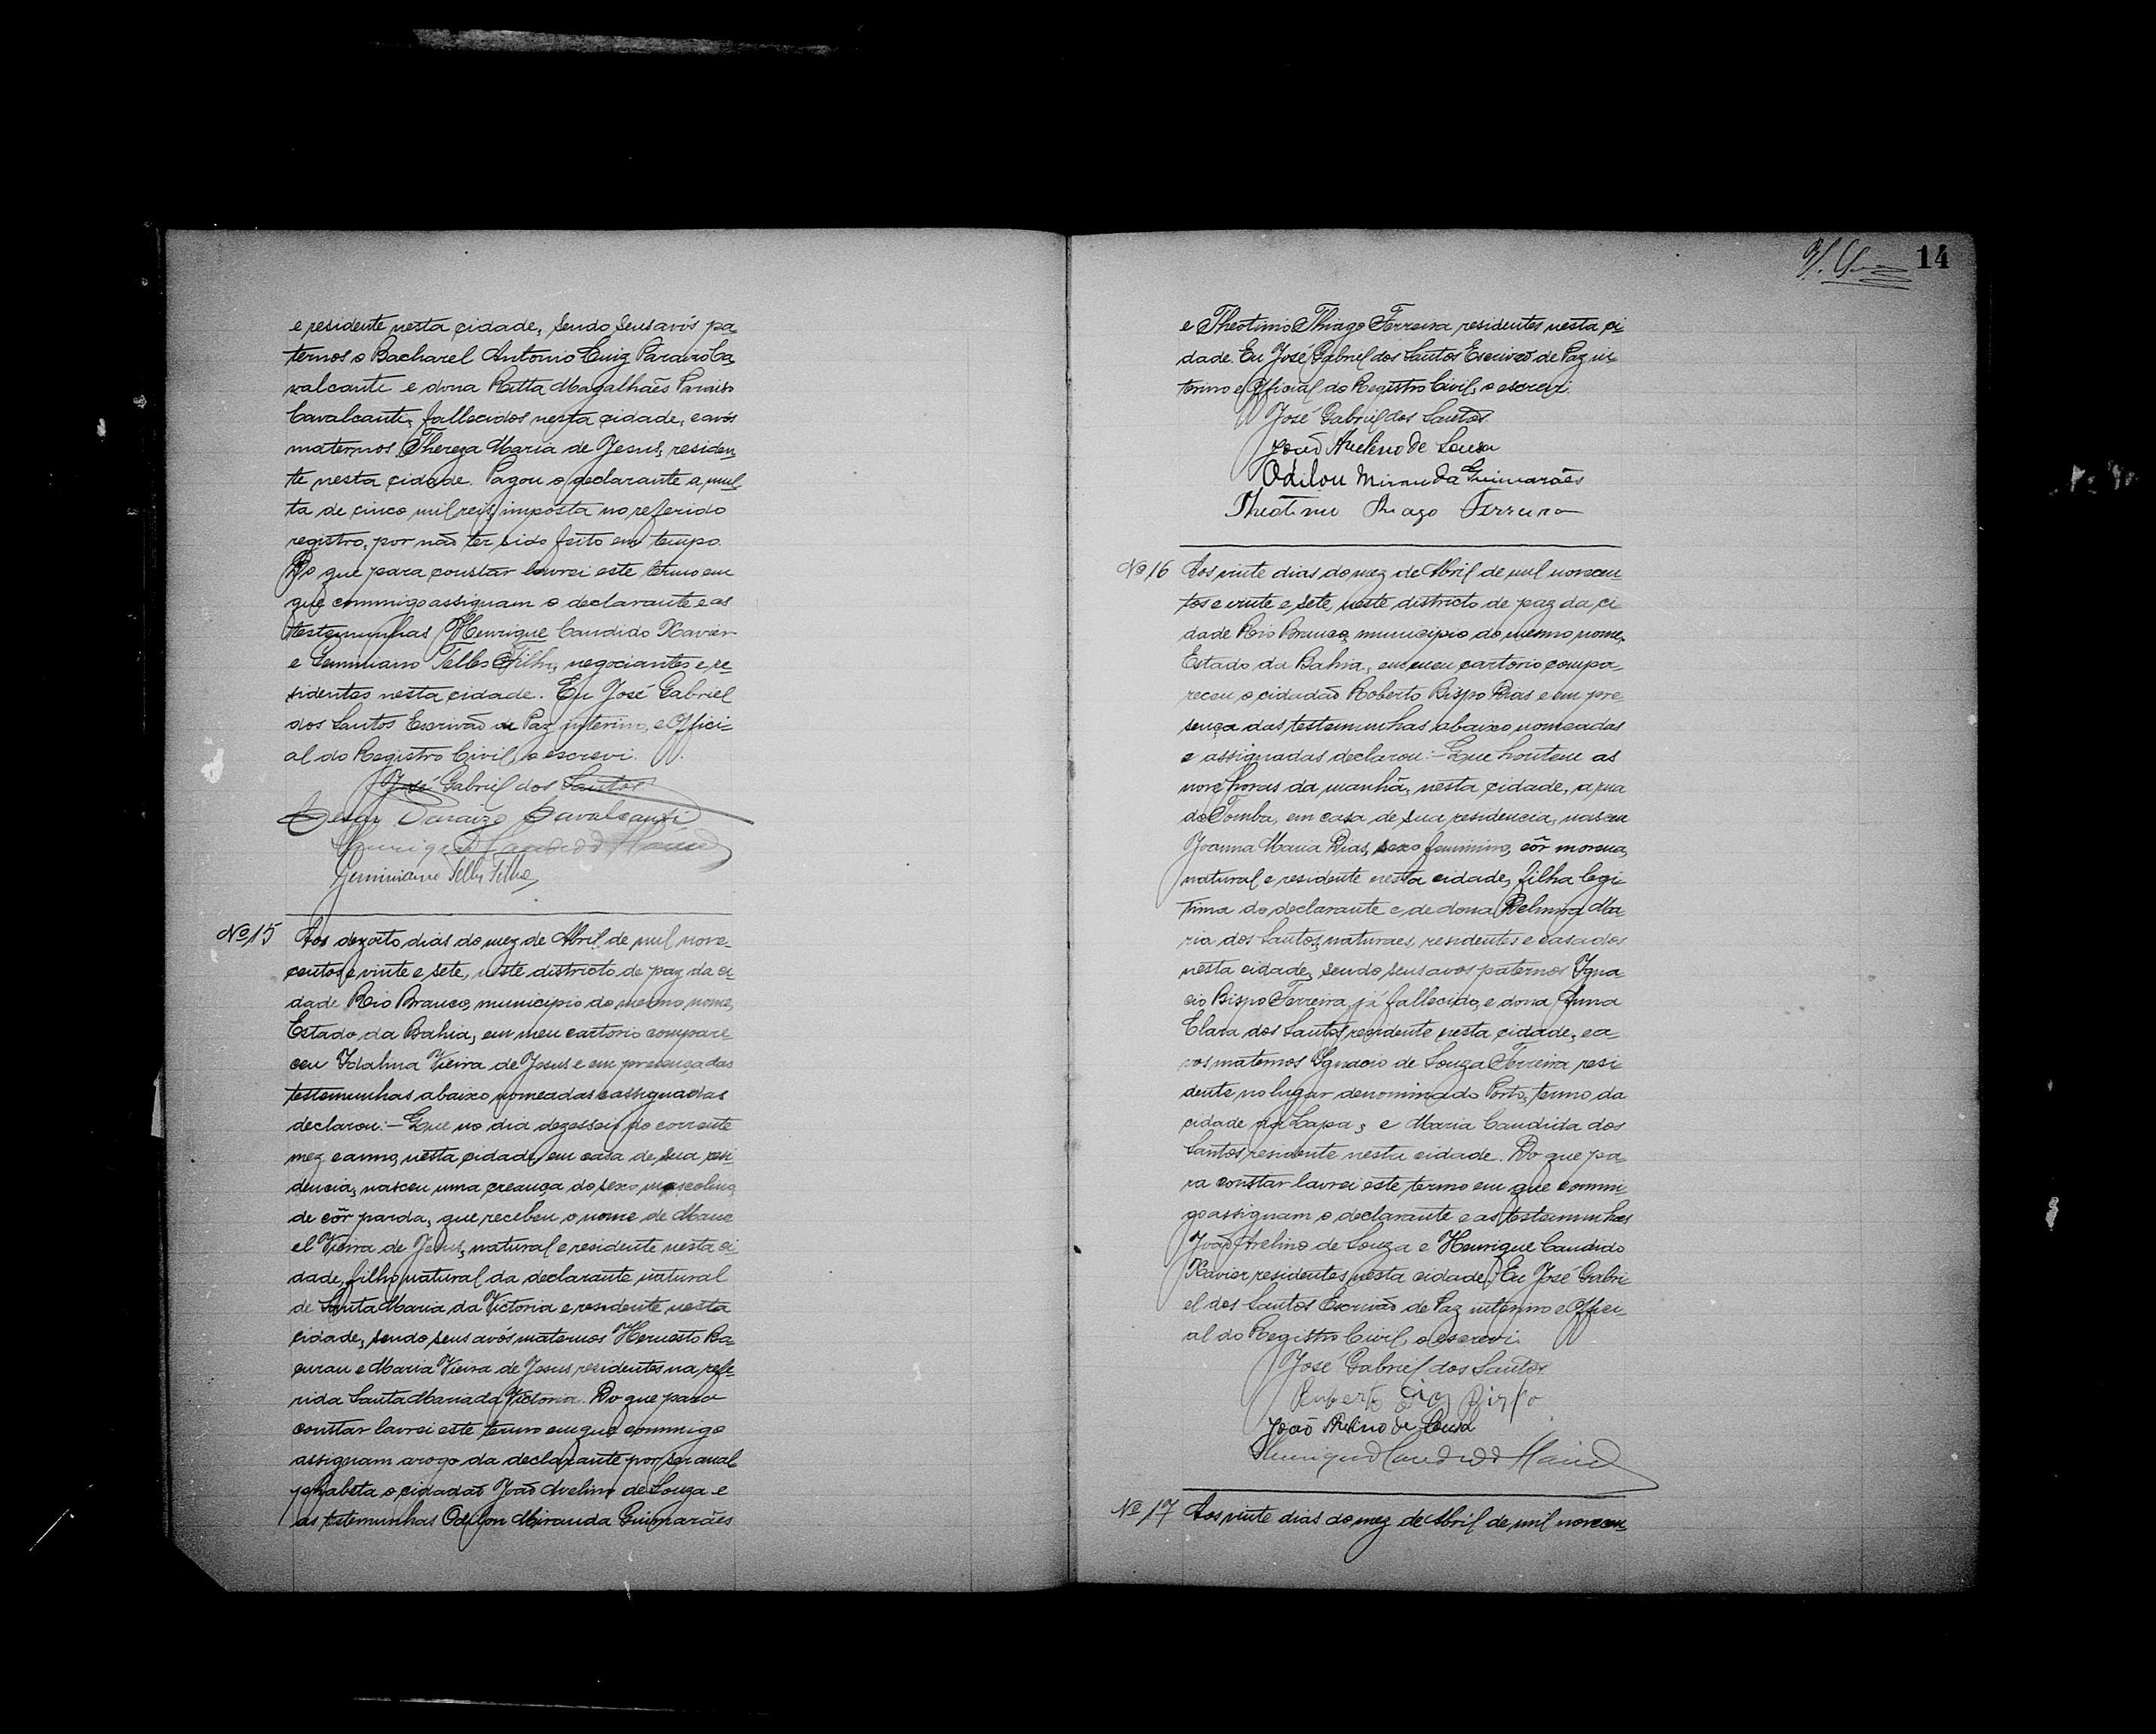 e residente nesta cidade, sendo seus avós pa
ternos o Bacharel Antonio Luiz Paraizo Ca
valcante e dona Ritta Magalhães Paraiso
Cavalcante, fallecidos nesta cidade, e avós
maternos Thereza Maria de Jesus, residen
te nesta cidade. Pagou o declarante a mul
ta de cinco mil reis, imposta no referido
registro, por não ter sido feito em tempo.
Do que para constar lavrei este termo em
que commigo assignam o declarante e as
testemunhas Henrique Candido Xavier
e Geminiano Telles Filho, negociantes e re
sidentes nesta cidade. Eu José Gabriel
dos Santos Escrivão de Paz interino, e Offici-
al do Registro Civil, o escrevi.
José Gabriel dos Santos
Cesar Paraizo Cavalcanti
Henrique Candido Xavier
Geminiano Telles Filho
Nº 15 Aos dezoito dias do mez de Abril de mil nove-
centos e vinte e sete, neste districto de paz da ci
dade Rio Branco, municipio do mesmo nome,
Estado da Bahia, em meu cartorio compare
ceu Idalina Vieira de Jesus e em presença das
testemunhas abaixo nomeadas e assignadas
declarou:- Que no dia dezesseis do corrente
mez e anno, nesta cidade, em casa de sua resi
dencia, nasceu uma creança do sexo mascolino,
de côr parda, que recebeu o nome de Mano
el Vieira de Jesus, natural e residente nesta ci
dade, filho natural da declarante natural
de Santa Maria da Victoria e residente nesta
cidade, sendo seus avós maternos Hernesto Ba
curau e Maria Vieira de Jesus residentes na refe
rida Santa Maria da Victoria. Do que para
constar lavrei este termo em que commigo
assignam a rogo da declarante por ser anal
phabeta o cidadão João Avelino de Souza e
as testemunhas Odilon Miranda Guimarães
14
e Theotimio Thiago Ferreira, residentes nesta ci
dade. Eu José Gabriel dos Santos Escrivão de Paz in
terino e Official do Registro Civil, o escrevi.
José Gabriel dos Santos
João Avelino de Sousa
Odilon Miranda Guimarães
Theotimio Thiago Ferreira
Nº 16 Aos vinte dias do mez de Abril de mil novecen
tos e vinte e sete, neste districto de paz da ci
dade Rio Branco, municipio do mesmo nome,
Estado da Bahia, em meu cartorio compa-
receu o cidadão Roberto Bispo Dias e em pre
sença das testemunhas abaixo nomeadas
e assignadas declarou:- Que hontem as
nove horas da manhã, nesta cidade, a rua
do Tomba, em casa de sua residencia, nasceu
Joanna Maria Dias, sexo feminino, côr morena,
natural e residente nesta cidade, filha legi
tima do declarante e de dona Delmira Ma
ria dos Santos, naturaes, residentes e casados
nesta cidade, sendo seus avos paternos Igna
cio Bispo Ferreira, já fallecido, e dona Anna
Clara dos Santos residente nesta cidade, e a-
vos maternos Ignacio de Souza Ferreira resi
dente no lugar denominado Porto, termo da
cidade da Lapa, e Maria Candida dos
Santos residente nesta cidade. Do que pa-
ra constar lavrei este termo em que commi
go assignam o declarante e as testemunhas
João Avelino de Souza e Henrique Candido
Xavier residentes nesta cidade. Eu José Gabri
el dos Santos Escrivão de Paz interino e Offici-
al do Registro Civil, o escrevi.
José Gabriel dos Santos
Ruperto Dias Bispo
João Avelino de Sousa
Henrique Candido Xavier
Nº 17 Aos vinte dias do mez de Abril de mil novecen